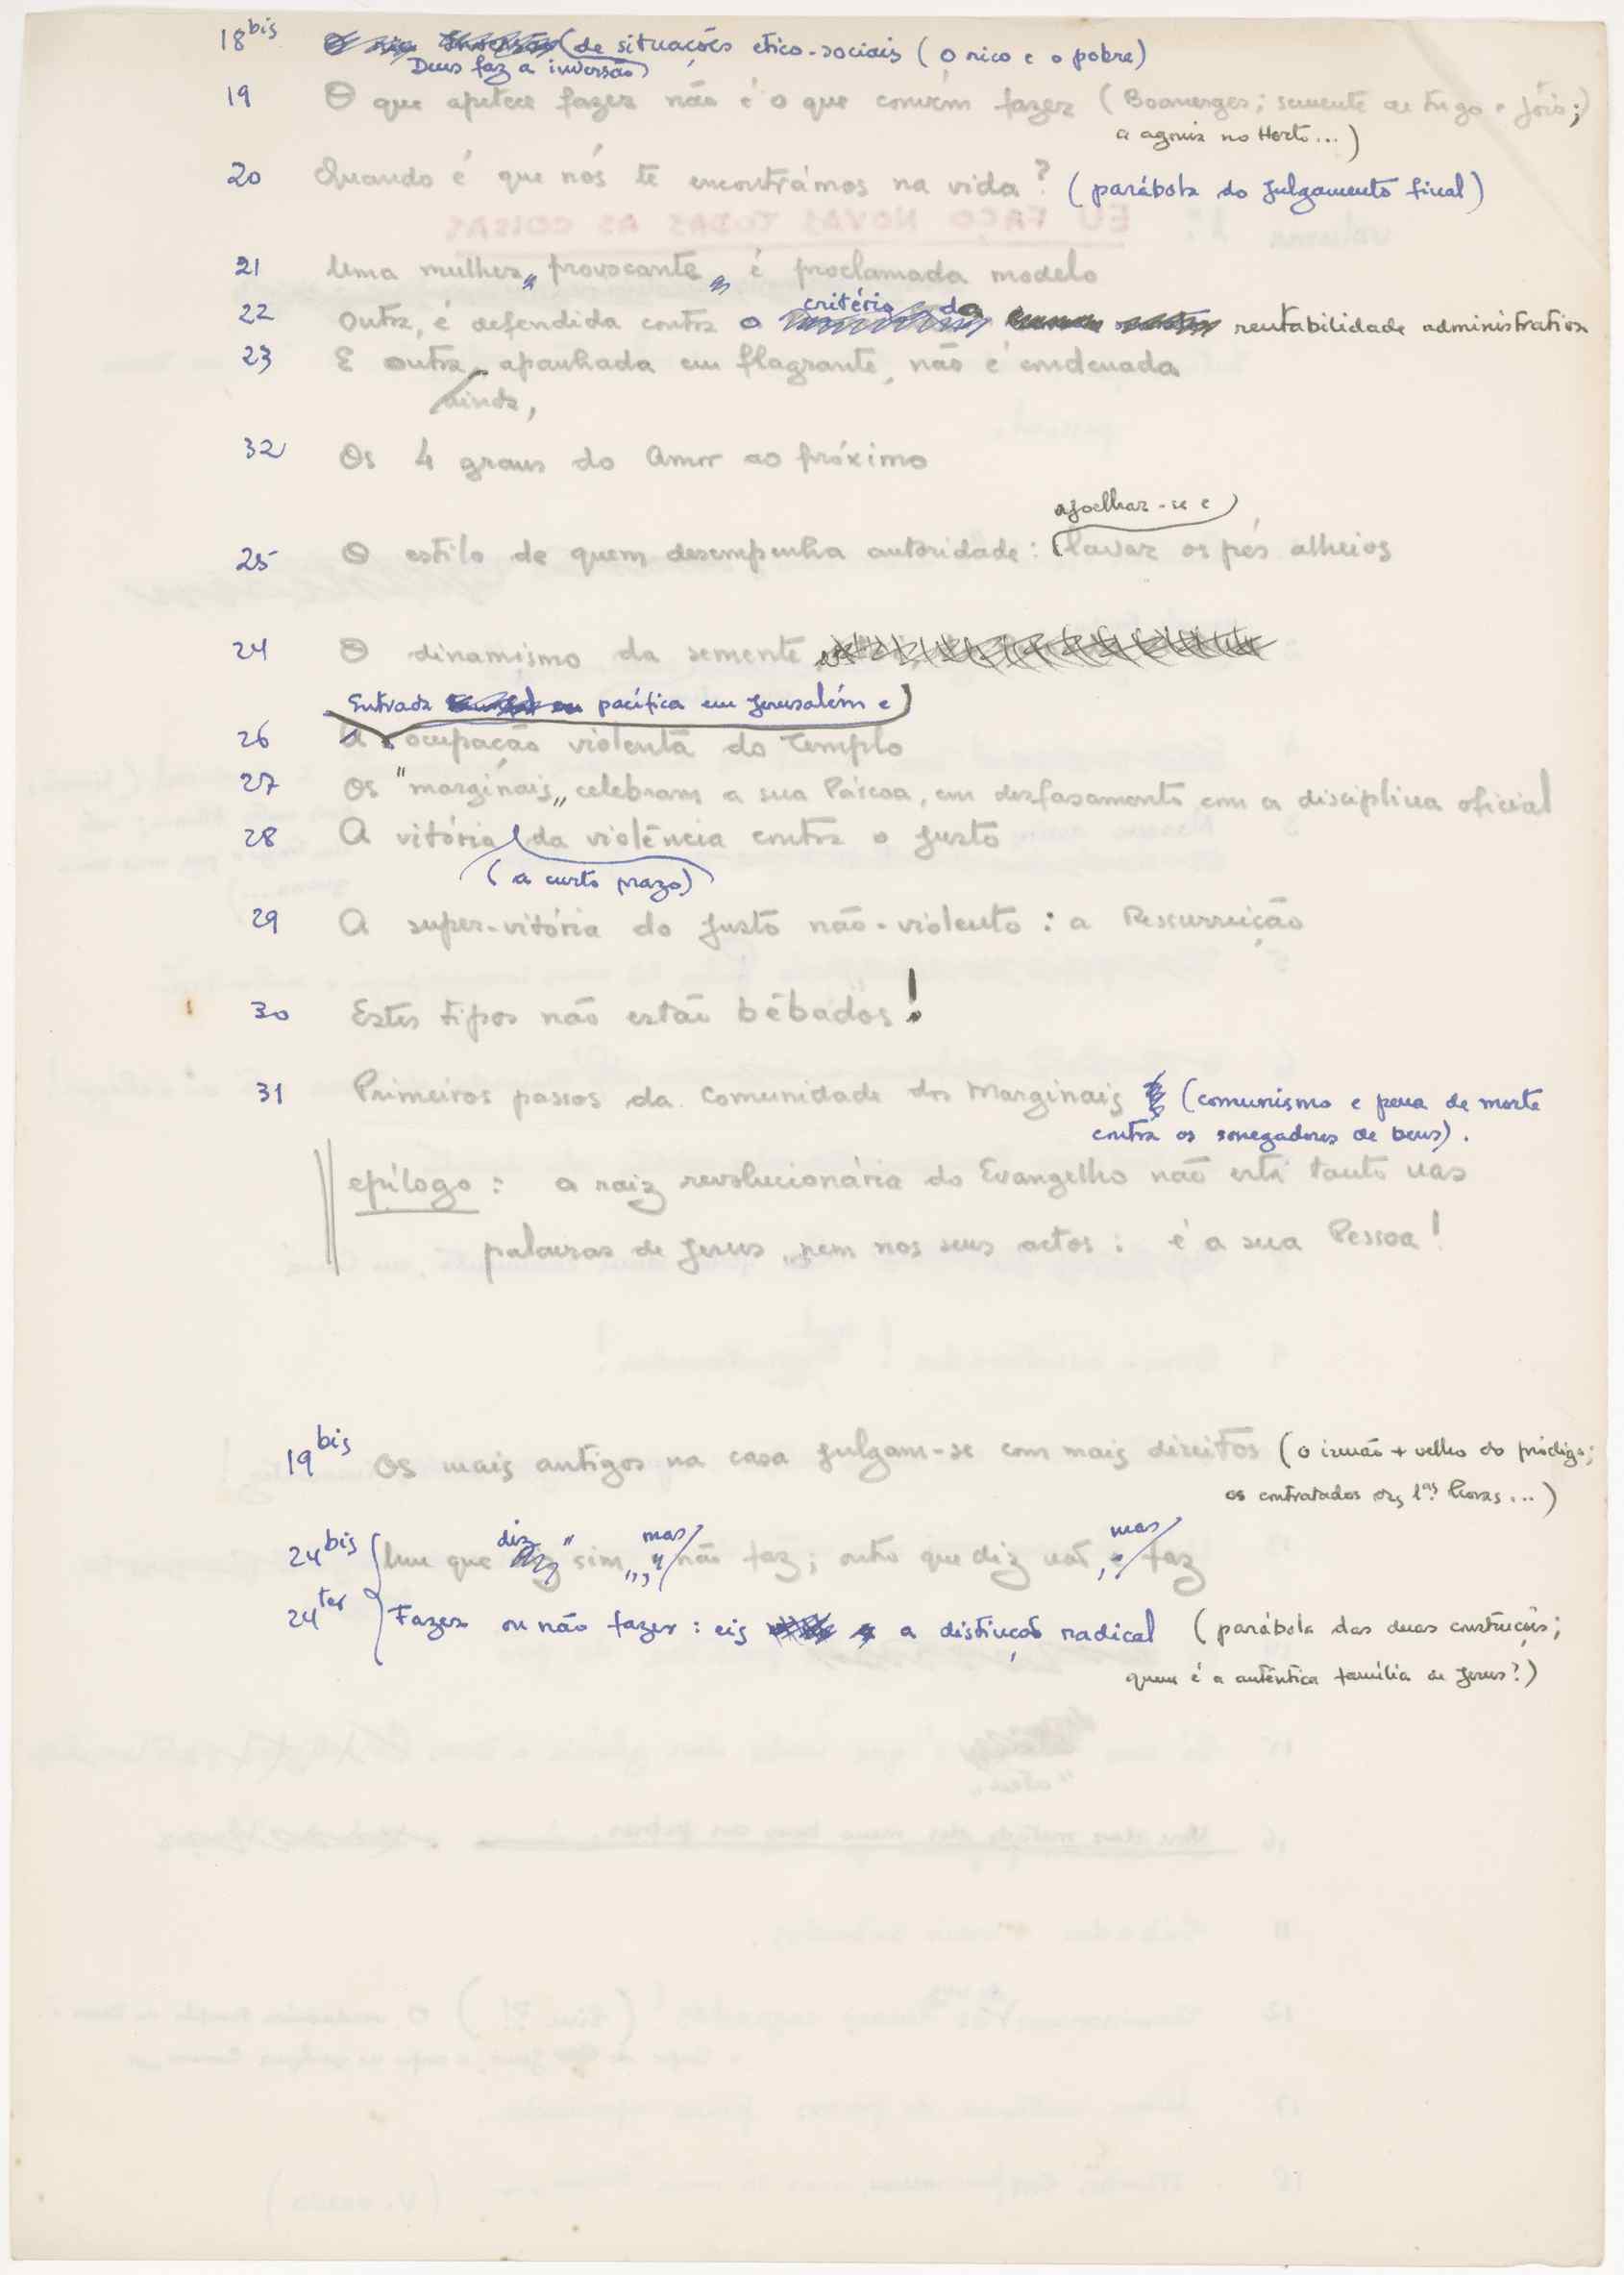 18 bis Deus faz a inversão de situações ético-sociais (o rico e o pobre)
19 O que apetece fazer não é o que convém fazer (Boanerges; semente de trigo e jóio;
a agonia no Horto...)
20 Quando é que nós te encontrámos na vida? (parábola do julgamento final)
21 Uma mulher "provocante" é proclamada modelo
22 Outra, é defendida contra o critério da rentabilidade administrativa
23 E outra ainda, apanhada em flagrante, não é condenada
32 Os 4 graus do Amor ao próximo
25 O estilo de quem desempenha autoridade: ajoelhar-se e lavar os pés alheios
24 O dinamismo da semente
Entrada pacífica em Jerusalém e
26 ocupação violenta do Templo
27 Os "marginais" celebram a sua Páscoa, em desfasamento com a disciplina oficial
28 A vitória (a curto prazo) da violência contra o justo
29 A super-vitória do justo não-violento: a Ressurreição
30 Estes tipos não estão bêbados!
31 Primeiros passos da Comunidade dos Marginais (comunismo e pena de morte
contra os sonegadores de bens).
epílogo: a raiz revolucionária do Evangelho não está tanto nas
palavras de Jesus, nem nos seus actos: é a sua Pessoa!
19 bis Os mais antigos na casa julgam-se com mais direitos (o irmão + velho do pródigo;
os contratados das 1as horas...)
24 bis Um que diz "sim", mas não faz; outro que diz não, mas faz
24 ter Fazer ou não fazer: eis a distinção radical (parábola das duas construções;
quem é a autêntica família de Jesus?)